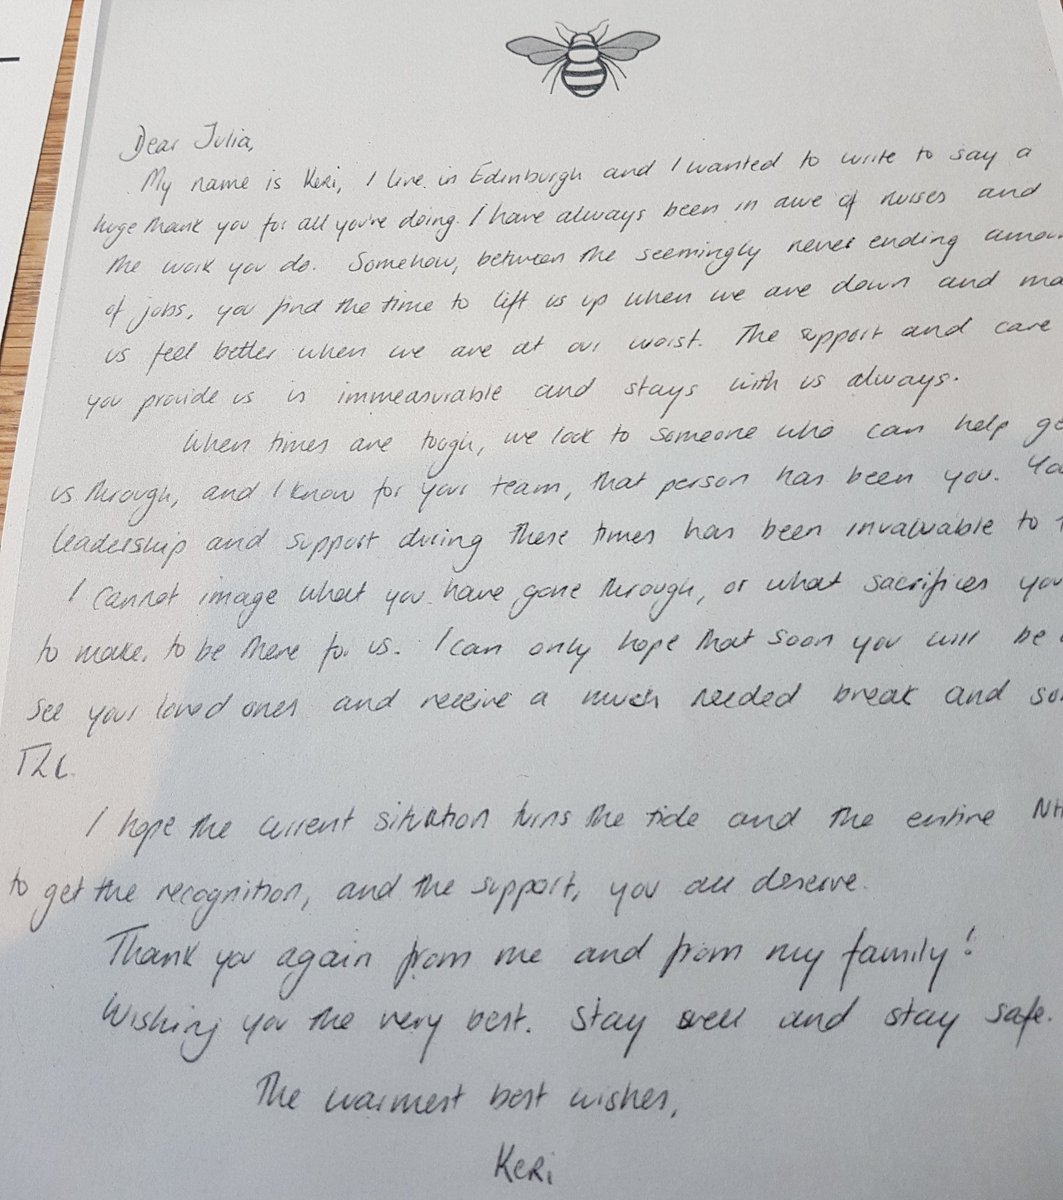 Dear Julia,
My name is Keri, I live in Edinburgh and I wanted to write to say a
huge thank you for all you're doing. I have always been in awe of nurses and
the work you do. Somehow, between the seemingly never ending amou
of jobs, you find the time to lift us up when we are down and ma
us feel better when we are at our worst. The support and care
you provide us is immeasurable and stays with us always.
When times are tough, we look to someone who can help ge
us through, and I know for your team, that person has been you. You
leadership and support during these times has been invaluable to t
I cannot image what you have gone through, or what sacrifices you
to make, to be there for us. I can only hope that soon you will be
see your loved ones and receive a much needed break and so
TLC.
I hope the current situation turns the tide and the entire NH
to get the recognition, and the support, you all deserve.
Thank you again from me and from my family!
Wishing you the very best. Stay well and stay safe.
The warmest best wishes,
Keri